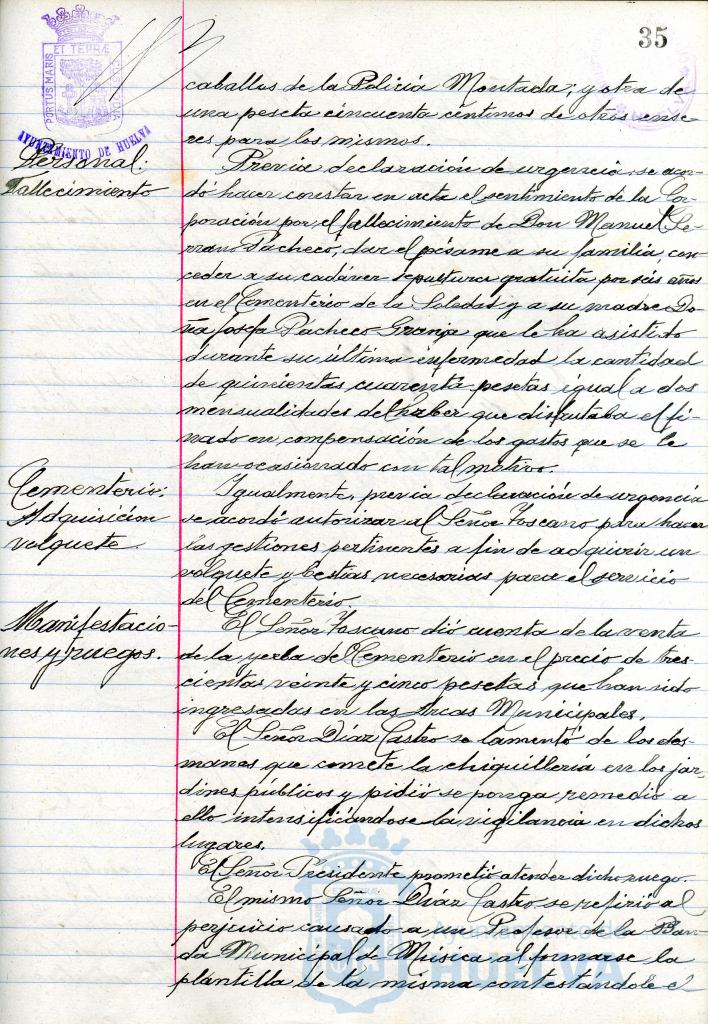 35
PORTUS MARIS ET TERRÆ CUSTODIA
AYUNTAMIENTO DE HUELVA
caballos de la Policía Montada; y otra de
una peseta cincuenta céntimos de otros ense-
res para los mismos.
Personal:
Fallecimiento
Previa declaración de urgencia, se acor-
dó hacer constar en acta el sentimiento de la Cor-
poración por el fallecimiento de Don Manuel Se-
rrano Pacheco, dar el pésame a su familia, con-
ceder a su cadáver sepultura gratuita por seis años
en el Cementerio de la Soledad y a su madre Do-
ña Josefa Pacheco Granja que le ha asistido
durante su última enfermedad la cantidad
de quinientas cuarenta pesetas igual a dos
mensualidades del haber que disfrutaba el fi-
nado en compensación de los gastos que se le
han ocasionado con tal motivo.
Cementerio:
Adquisición
volquete.
Igualmente, previa declaración de urgencia
se acordó autorizar al Señor Toscano para hacer
las gestiones pertinentes a fin de adquirir un
volquete y bestias necesarias para el servicio
del Cementerio.
Manifestacio-
nes y ruegos.
El Señor Toscano dió cuenta de la venta
de la yerba del Cementerio en el precio de tres-
cientas veinte y cinco pesetas que han sido
ingresadas en las Arcas Municipales.
El Señor Díaz Castro se lamentó de los des-
manes que comete la chiquillería en los jar-
dines públicos y pidió se ponga remedio a
ello intensificándose la vigilancia en dichos
lugares.
El Señor Presidente prometió atender dicho ruego.
El mismo Señor Díaz Castro se refirió al
perjuicio causado a un Profesor de la Ban-
da Municipal de Música al formarse la
plantilla de la misma contestándole el
Ayuntamiento de
HUELVA